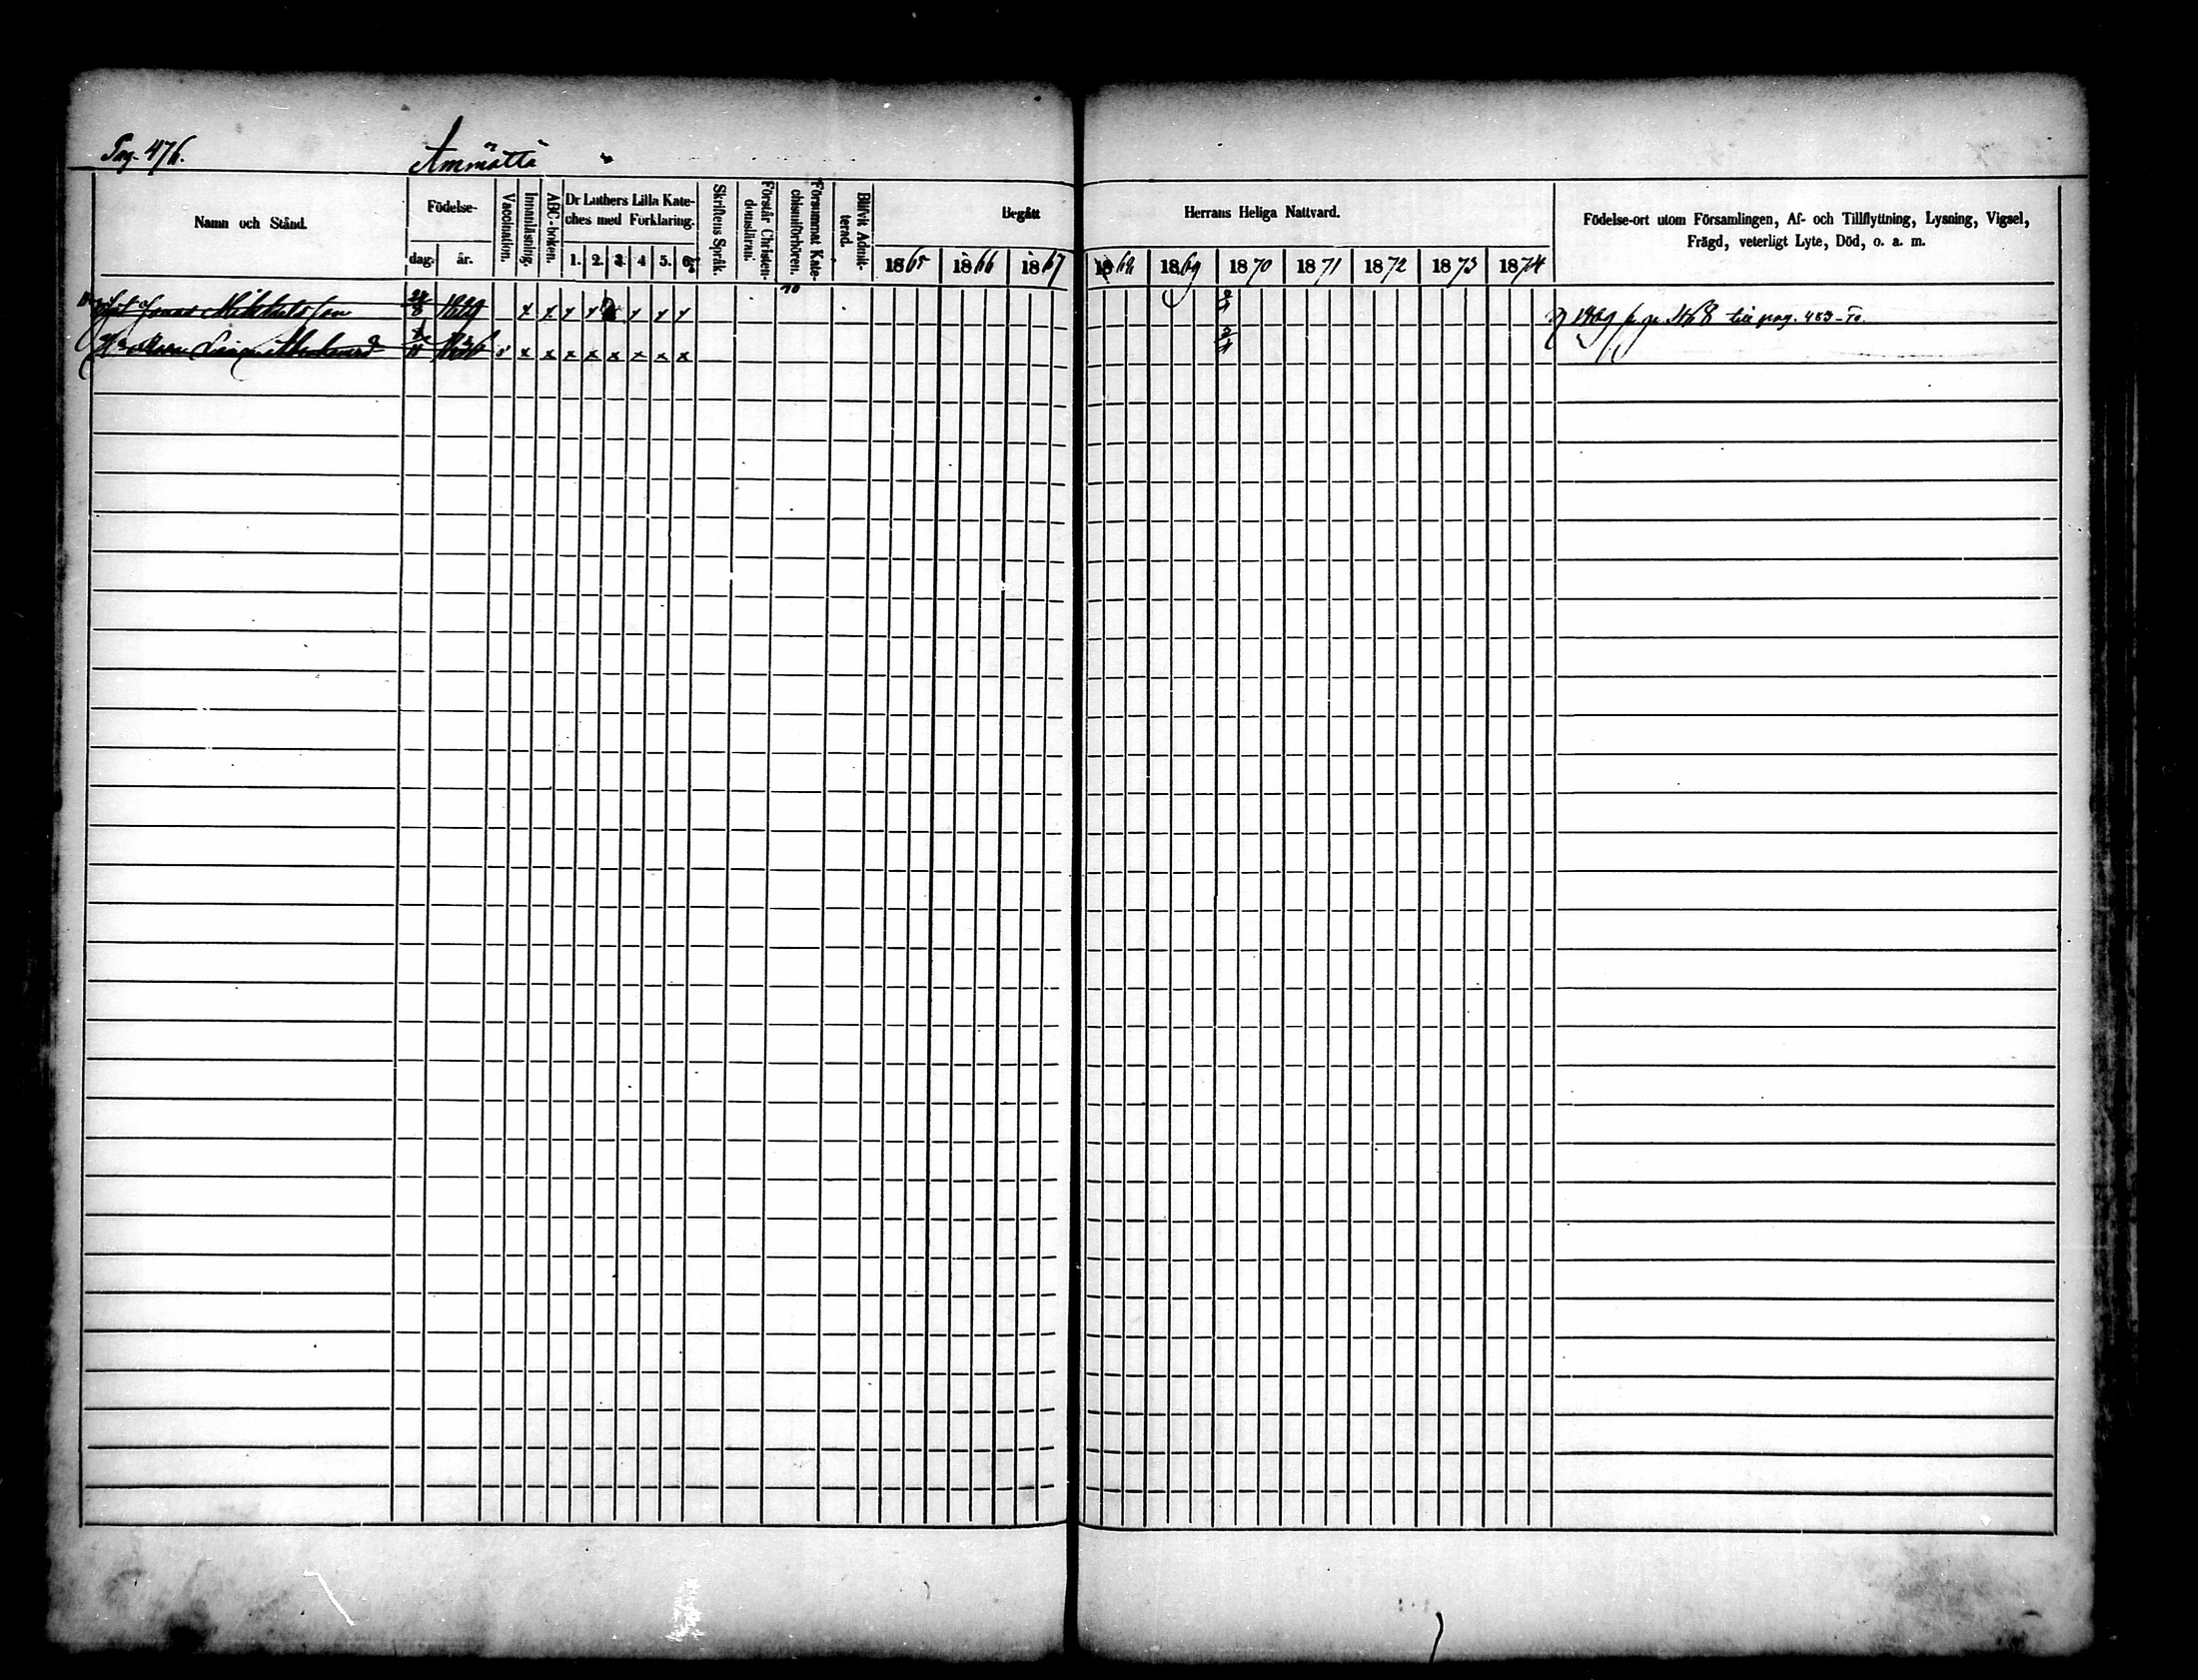 Pag. 476.
Ämmättä
Namn och Stånd.
Födelse-
dag. år.
Vaccination.
Innanläsning.
ABC-boken.
Dr Luthers Lilla Kate-
ches med Förklaring.
1. 2. 3. 4 5. 6.
Skriftens Språk.
Förstår Christen-
domsläran.
Försummat Kate-
chismiförhören.
Blifvit Admit-
terad.
Begått
1865 1866 1867
Herrans Heliga Nattvard.
1868 1869 1870 1871 1872 1873 1874
Födelse-ort utom Församlingen, Af- och Tillflyttning, Lysning, Vigsel,
Frägd, veterligt Lyte, Död, o. a. m.
10
Jonas Mikkelsson x x x x x x x 1869 468 till pag. 483-70.
x x x x x x x x